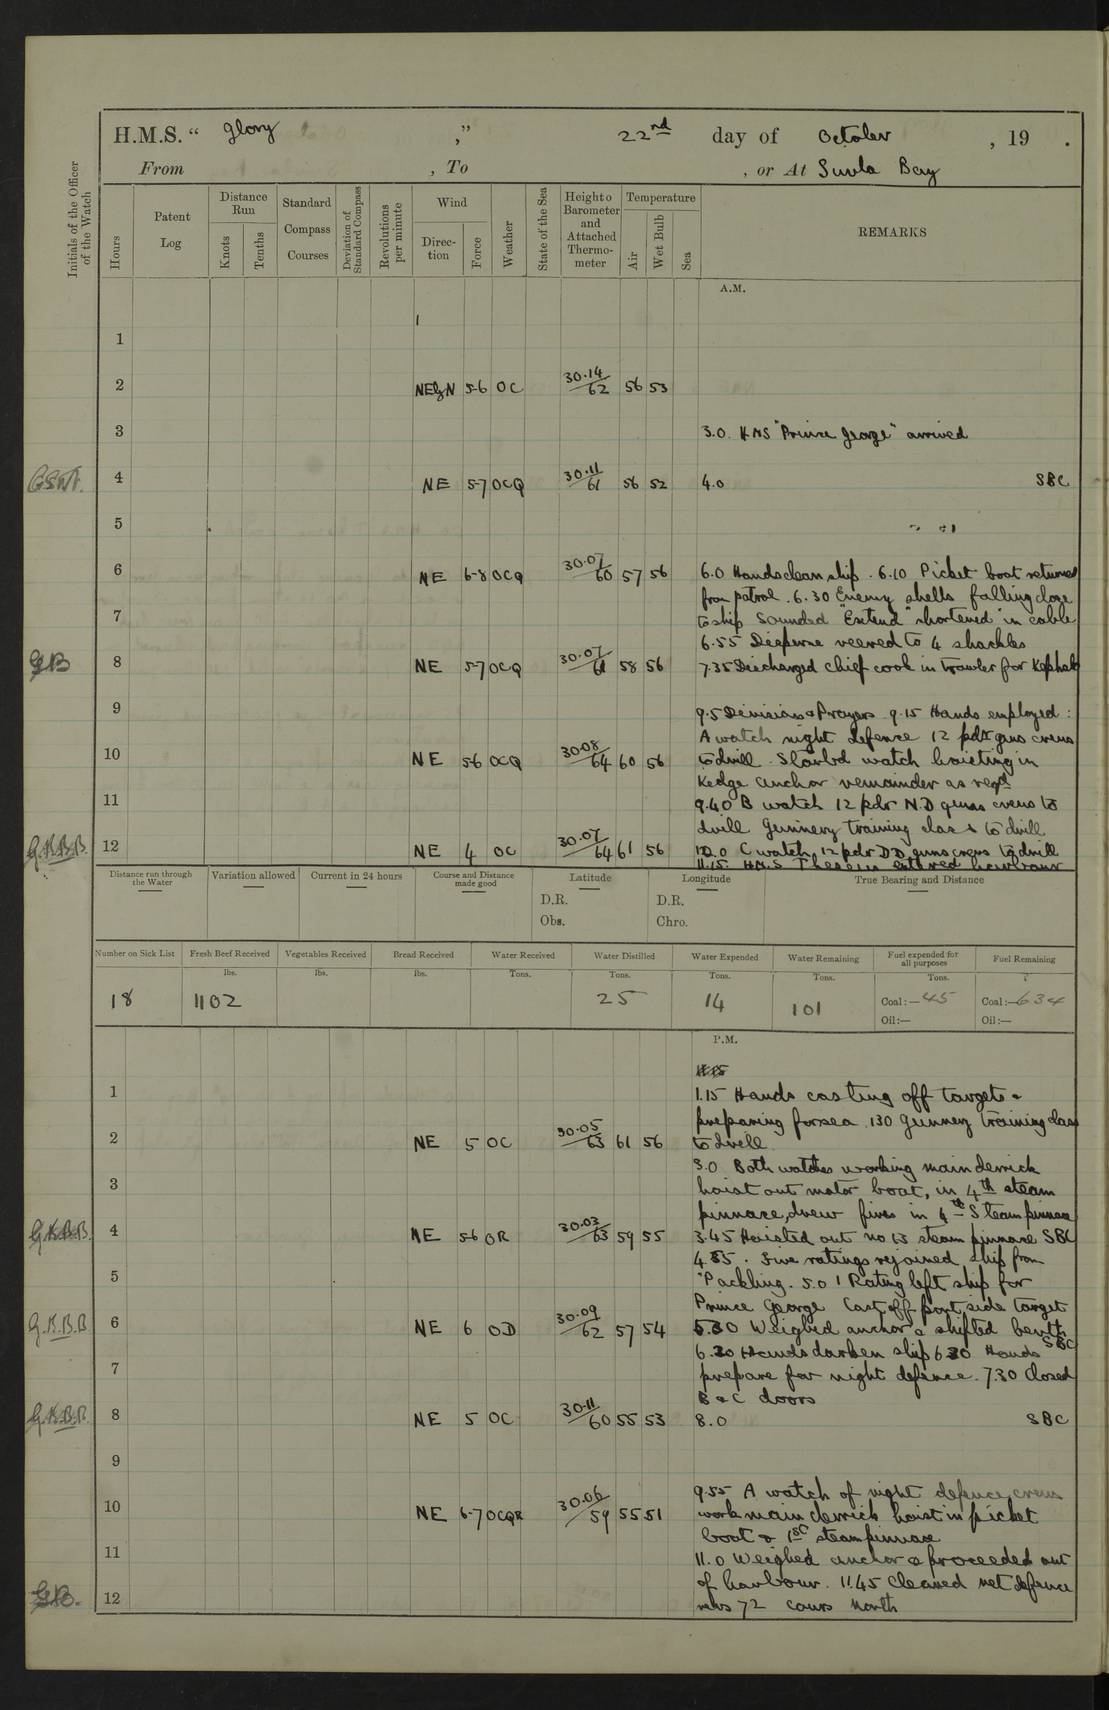 H.M.S. " Glory ," 22nd day of October , 19 .
From , To , or At Suvla Bay
Initials of the Officer of the Watch
Hours
Patent Log
Distance Run
Knots
Tenths
Standard Compass Courses
Deviation of Standard Compass
Revolutions per minute
Wind
Direc-tion
Force
Weather
State of the Sea
Height o Barometer and Attached Thermo-meter
Temperature
Air
Wet Bulb
Sea
REMARKS
A.M.
1
2 NEbyN 5-6 OC 30.14/62 56 53
3 3.0. HMS "Prince George" arrived
4 NE 5-7 OCQ 30.11/61 56 52 4.0 SBC
5
6 NE 6-8 OCQ 30.07/60 57 56 6.0 Hands clean ship . 6.10 Picket boat returned
from patrol . 6.30 Enemy shells falling close
7 to ship Sounded "Extend" shortened in cable
6.55 veered to 4 shackles
GB 8 NE 5-7 OCQ 30.07/61 58 56 7.35 Discharged chief cook in trawler for Kephalo
9 9.5 Divisions & Prayers 9.15 Hands employed :
A watch night defence 12 pdr guns crews
10 NE 5-6 OCQ 30.08/64 60 56 to drill. Starbd watch hoisting in
Kedge anchor remainder as reqd
11 9.40 B watch 12 pdr N.D guns crews to
drill Gunnery training class to drill
G.K.B.B. 12 NE 4 OC 30.07/64 61 56 10.0 C watch 12 pdr guns crews to drill
11.15. H.M.S Theseus entered harbour
Distance run through the Water
Variation allowed
Current in 24 hours
Course and Distance made good
Latitude
D.R.
Obs.
Longitude
D.R.
Chro.
True Bearing and Distance
Number on Sick List
Fresh Beef Received
Vegetables Received
Bread Received
Water Received
Water Distilled
Water Expended
Water Remaining
Fuel expended for all purposes
Fuel Remaining
lbs. lbs. lbs. Tons. Tons. Tons. Tons. Tons.
18 1102 25 14 101 Coal:— 45 Coal:— 634
Oil:— Oil:—
P.M.
1 1.15 Hands casting off targets &
preparing for sea 1.30 Gunnery training class
2 NE 5 OC 30.05/63 61 56 to drill
3.0 Both watches working main derrick
3 hoist out motor boat, in 4th steam
pinnace, drew fires in 4th Steam pinnace
G.K.B.B. 4 NE 5-6 OR 30.03/63 59 55 3.45 Hoisted out no steam pinnace SBC
4.55 . Five ratings rejoined ship from
5 5.0 1 Rating left ship for
Prince George Cast off port side target
G.K.B.B 6 NE 6 OD 30.09/62 57 54 5.30 Weighed anchor & shifted berth
SBC
6.20 Hands darken ship 6.30 Hands
7 prepare for night defence. 7.30 Closed
B & C doors
G.K.B.B. 8 NE 5 OC 30.11/60 55 53 8.0 SBC
9
9.55 A watch of night defence crews
10 NE 6-7 OCQR 30.06/59 55 51 work main derrick hoist in picket
boat & 1st steam pinnace
11 11.0 Weighed anchor & proceeded out
of harbour. 11.45 Cleared net defence
GB. 12 revs 72 cours North